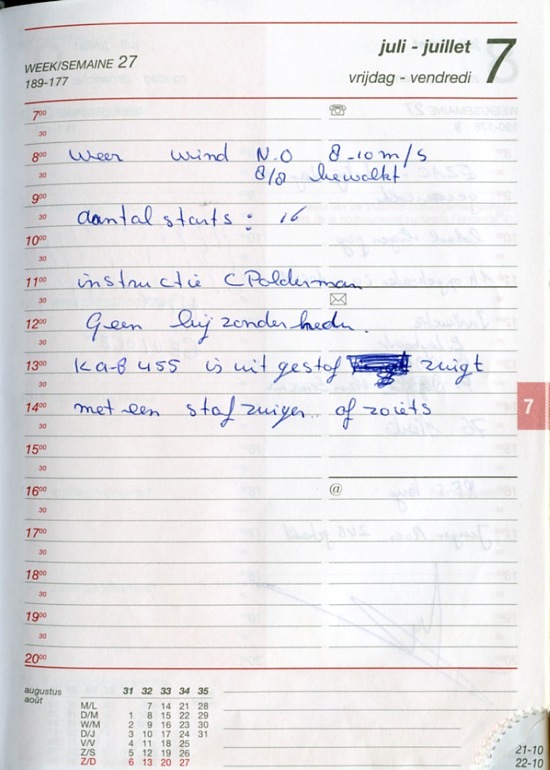 WEEK/SEMAINE 27
189-177
juli - juillet
vrijdag - vendredi
7
7⁰⁰
30
8⁰⁰ weer wind N.O 8-10 m/s
30 8/8 bewolkt
9⁰⁰
30 aantal starts : 16
10⁰⁰
30
11⁰⁰ instructie C Polderman
30
12⁰⁰ Geen bijzonderheden.
30
13⁰⁰ Ka-8 455 is uit gestof zuigt
30
14⁰⁰ met een stofzuiger of zoiets
30
15⁰⁰
30
16⁰⁰ @
30
17⁰⁰
30
18⁰⁰
30
19⁰⁰
30
20⁰⁰
7
augustus
août
31 32 33 34 35
M/L 7 14 21 28
D/M 1 8 15 22 29
W/M 2 9 16 23 30
D/J 3 10 17 24 31
V/V 4 11 18 25
Z/S 5 12 19 26
Z/D 6 13 20 27
21-10
22-10